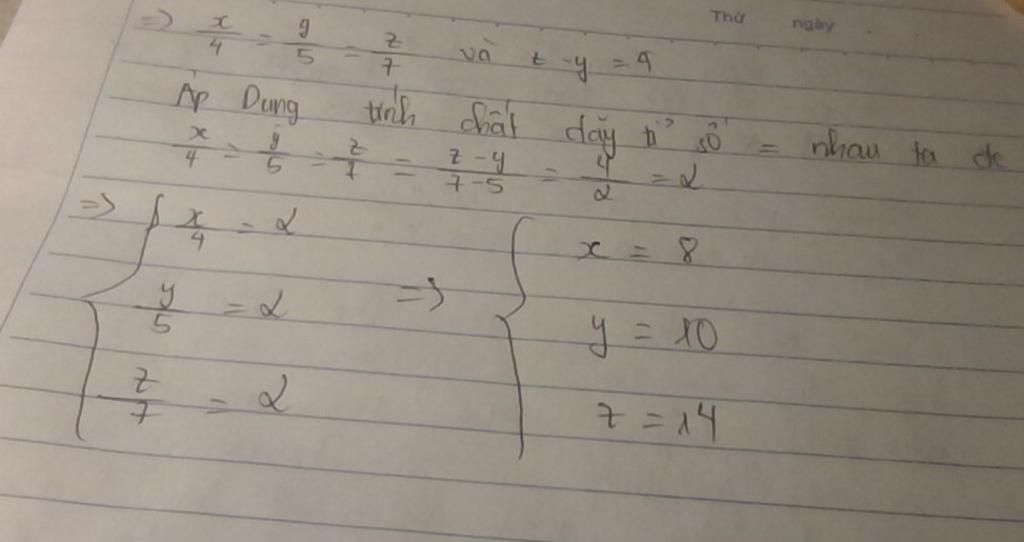 Thứ ngày . .
=> x/4 = y/5 = z/7 và z - y = 4
Áp Dụng tính chất dãy tỉ số = nhau ta đc
x/4 = y/5 = z/7 = (z - y)/(7 - 5) = 4/2 = 2
=> { x/4 = 2 => { x = 8
y/5 = 2 y = 10
z/7 = 2 z = 14